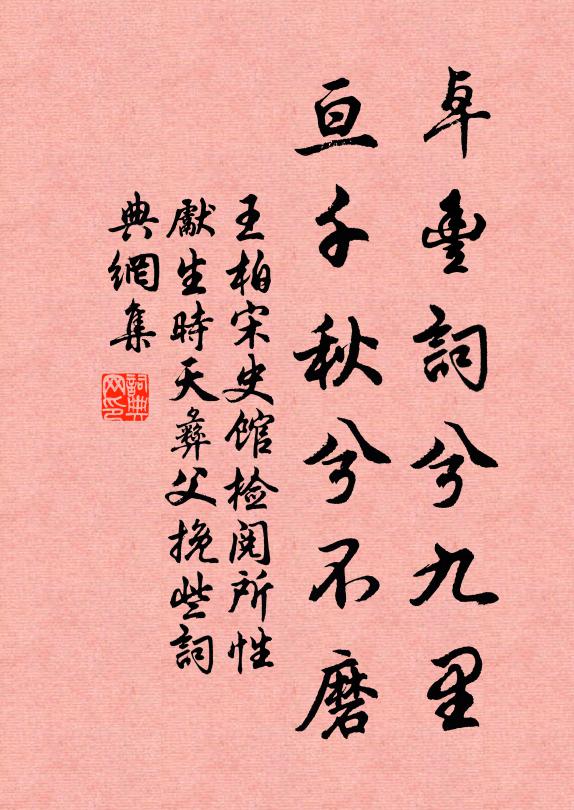 卓豐詞兮九里
亘千秋兮不磨
王柏宋史馆检阅所性
獻生時天彝父挽些詞
典網集
詞典網印